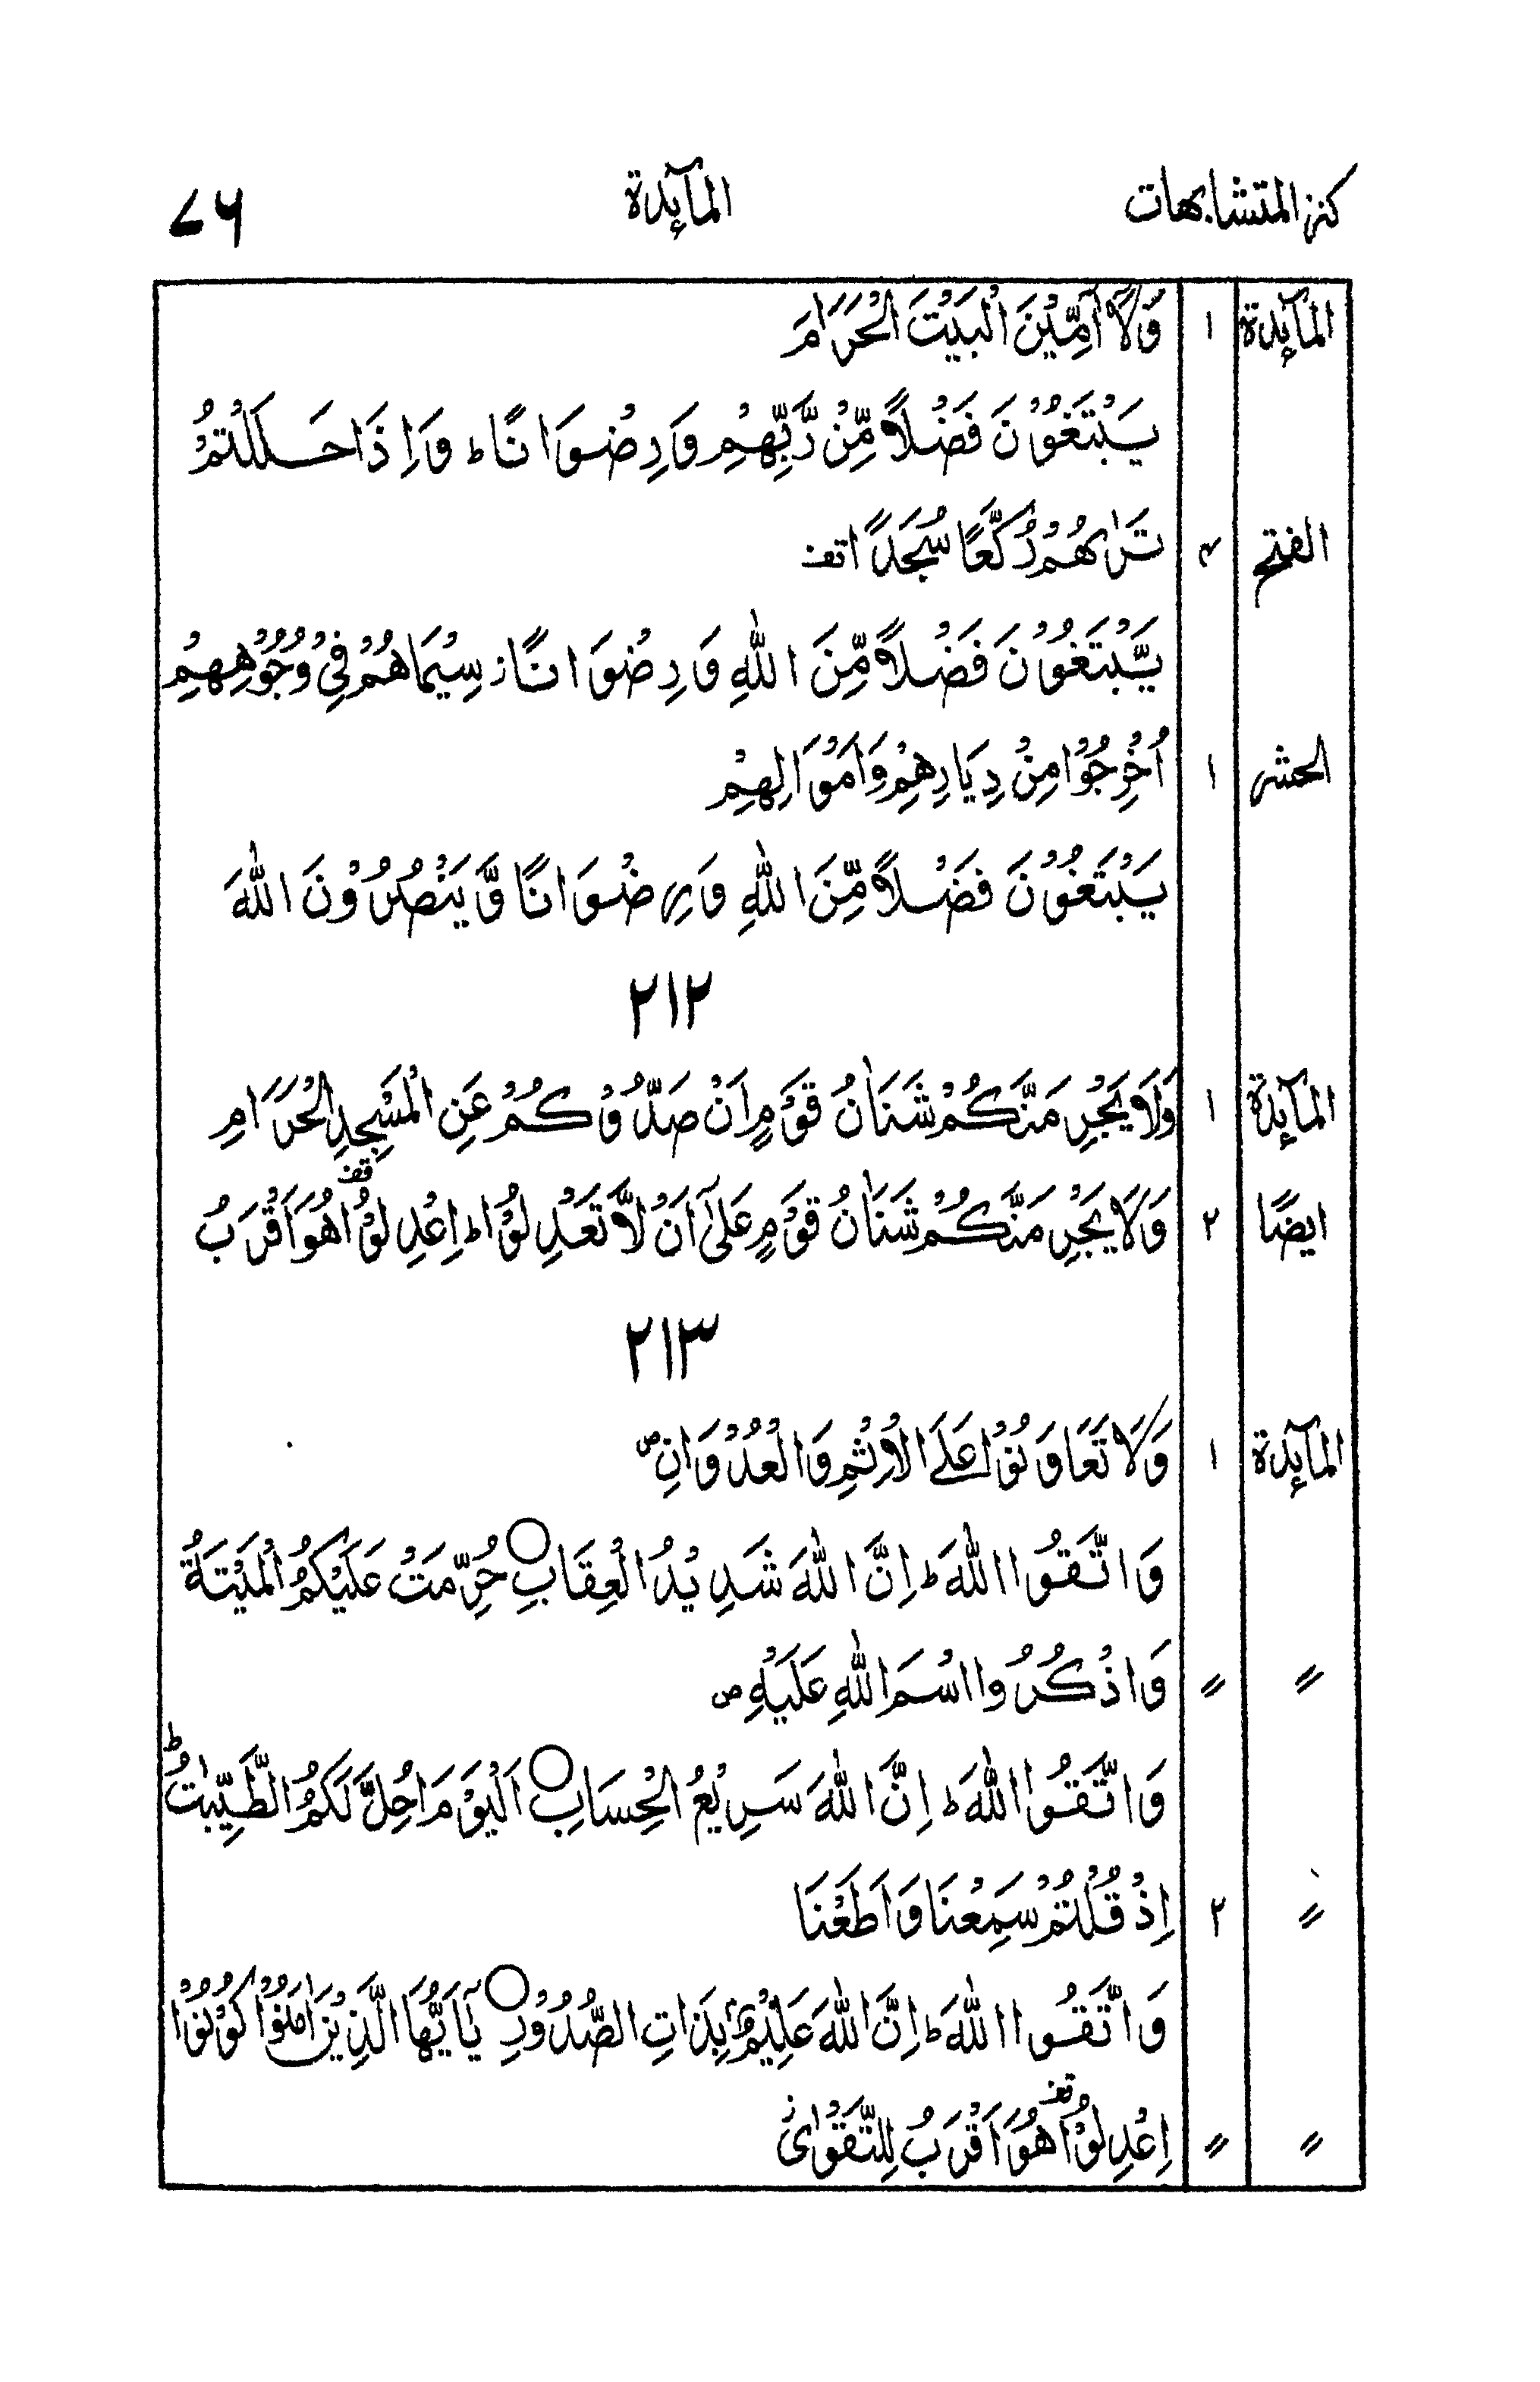 كنز المتشابهات المآئدة ۷۶
المآئدة ۱ وَلَآ اٰمِّيْنَ الْبَيْتَ الْحَرَامَ
يَبْتَغُوْنَ فَضْلًا مِّنْ رَّبِّهِمْ وَرِضْوَانًا ؕ وَاِذَا حَلَلْتُمْ
الفتح ۴ تَرٰىهُمْ رُكَّعًا سُجَّدًا
يَّبْتَغُوْنَ فَضْلًا مِّنَ اللّٰهِ وَرِضْوَانًا ز سِيْمَاهُمْ فِيْ وُجُوْهِهِمْ
الحشر ۱ اُخْرِجُوْا مِنْ دِيَارِهِمْ وَاَمْوَالِهِمْ
يَبْتَغُوْنَ فَضْلًا مِّنَ اللّٰهِ وَرِضْوَانًا وَّيَنْصُرُوْنَ اللّٰهَ
۲۱۲
المآئدة ۱ وَلَا يَجْرِمَنَّكُمْ شَنَاٰنُ قَوْمٍ اَنْ صَدُّوْكُمْ عَنِ الْمَسْجِدِ الْحَرَامِ
ايضًا ۲ وَلَا يَجْرِمَنَّكُمْ شَنَاٰنُ قَوْمٍ عَلٰٓى اَنْ لَّا تَعْدِلُوْا ؕ اِعْدِلُوْا قف هُوَ اَقْرَبُ
۲۱۳
المآئدة ۱ وَلَا تَعَاوَنُوْا عَلَى الْاِثْمِ وَالْعُدْوَانِ ص
وَاتَّقُوا اللّٰهَ ؕ اِنَّ اللّٰهَ شَدِيْدُ الْعِقَابِ ○ حُرِّمَتْ عَلَيْكُمُ الْمَيْتَةُ
〃 〃 وَاذْكُرُوا اسْمَ اللّٰهِ عَلَيْهِ ص
وَاتَّقُوا اللّٰهَ ؕ اِنَّ اللّٰهَ سَرِيْعُ الْحِسَابِ ○ اَلْيَوْمَ اُحِلَّ لَكُمُ الطَّيِّبٰتُ ؕ
〃 ۲ اِذْ قُلْتُمْ سَمِعْنَا وَاَطَعْنَا
وَاتَّقُوا اللّٰهَ ؕ اِنَّ اللّٰهَ عَلِيْمٌۢ بِذَاتِ الصُّدُوْرِ ○ يٰٓاَيُّهَا الَّذِيْنَ اٰمَنُوْا كُوْنُوْا
〃 〃 اِعْدِلُوْا قف هُوَ اَقْرَبُ لِلتَّقْوٰى ز